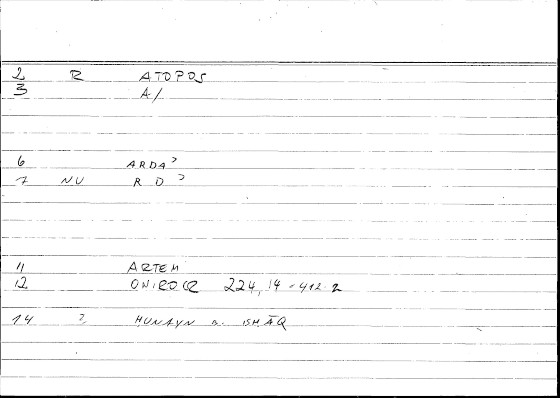 2 R ATOPOS
3 A/
6 ARDAʾ
7 NU R D ʾ
11 ARTEM
12 ONIROCR 224, 14 - 412.2
14 ? HUNAYN B. ISḤĀQ